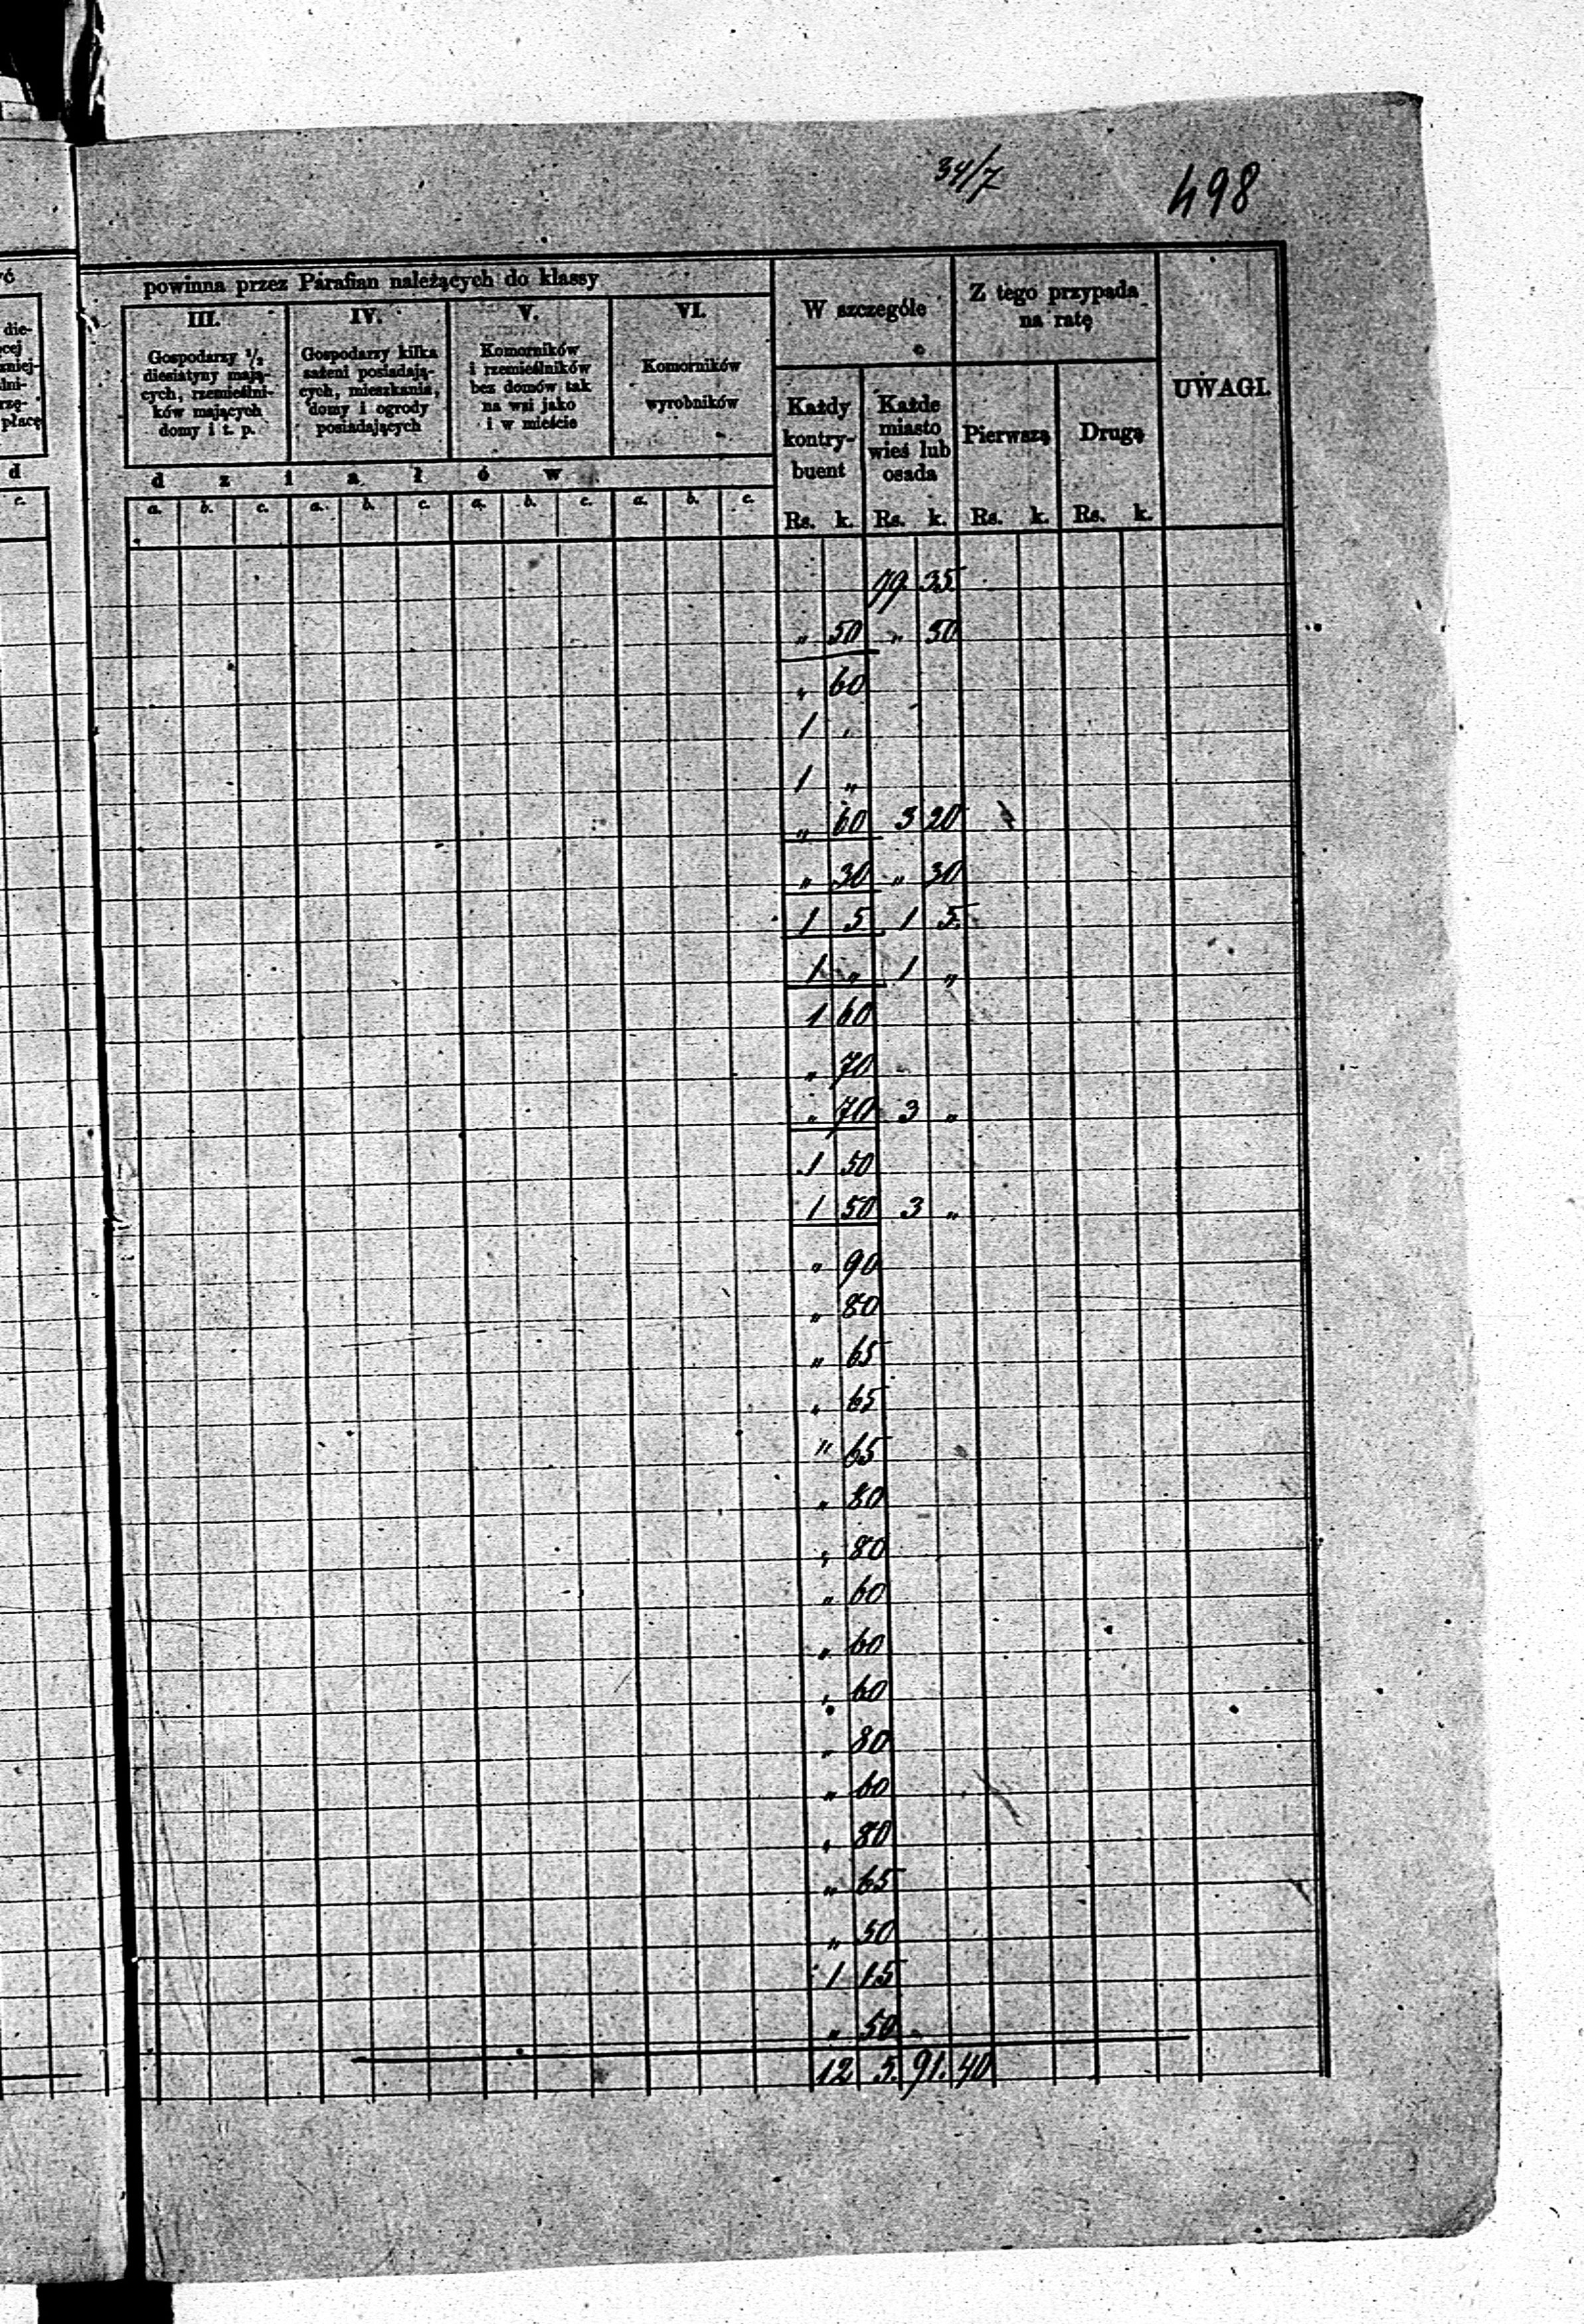 34/7
498
powinna przez Parafian należących do klassy
III.
Gospodarzy 1/2
diesiatyny mają-
cych, rzemieślni-
ków mających
domy i t. p.
IV.
Gospodarzy kilka
sażeni posiadają-
cych, mieszkania,
domy i ogrody
posiadających
V.
Komorników
i rzemieślników
bez domów tak
na wsi jako
i w mieście
VI.
Komorników
wyrobników
W szczególe
Każdy
kontry-
buent
Rs. k.
Każde
miasto
wieś lub
osada
Rs. k.
Z tego przypada
na ratę
Pierwszą
Rs. k.
Drugą
Rs. k.
UWAGI.
d z i a ł ó w
a. b. c. a. b. c. a. b. c. a. b. c.
79 35
„ 50 „ 50
„ 60
1 „
1 „
„ 60 3 20
„ 30 „ 30
1 5 1 5
1 „ 1 „
1 60
„ 70
„ 70 3 „
1 50
1 50 3 „
„ 90
„ 80
„ 65
„ 65
„ 65
„ 80
„ 80
„ 60
„ 60
„ 60
„ 80
„ 60
„ 80
„ 65
„ 50
1 15
„ 50
12 5. 91. 40